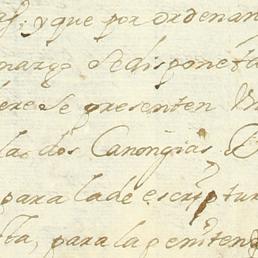 y que por ordenan
marzo se dispone ta
se presenten
las dos Canongias
para la de escriptur
ta, para la penitenç